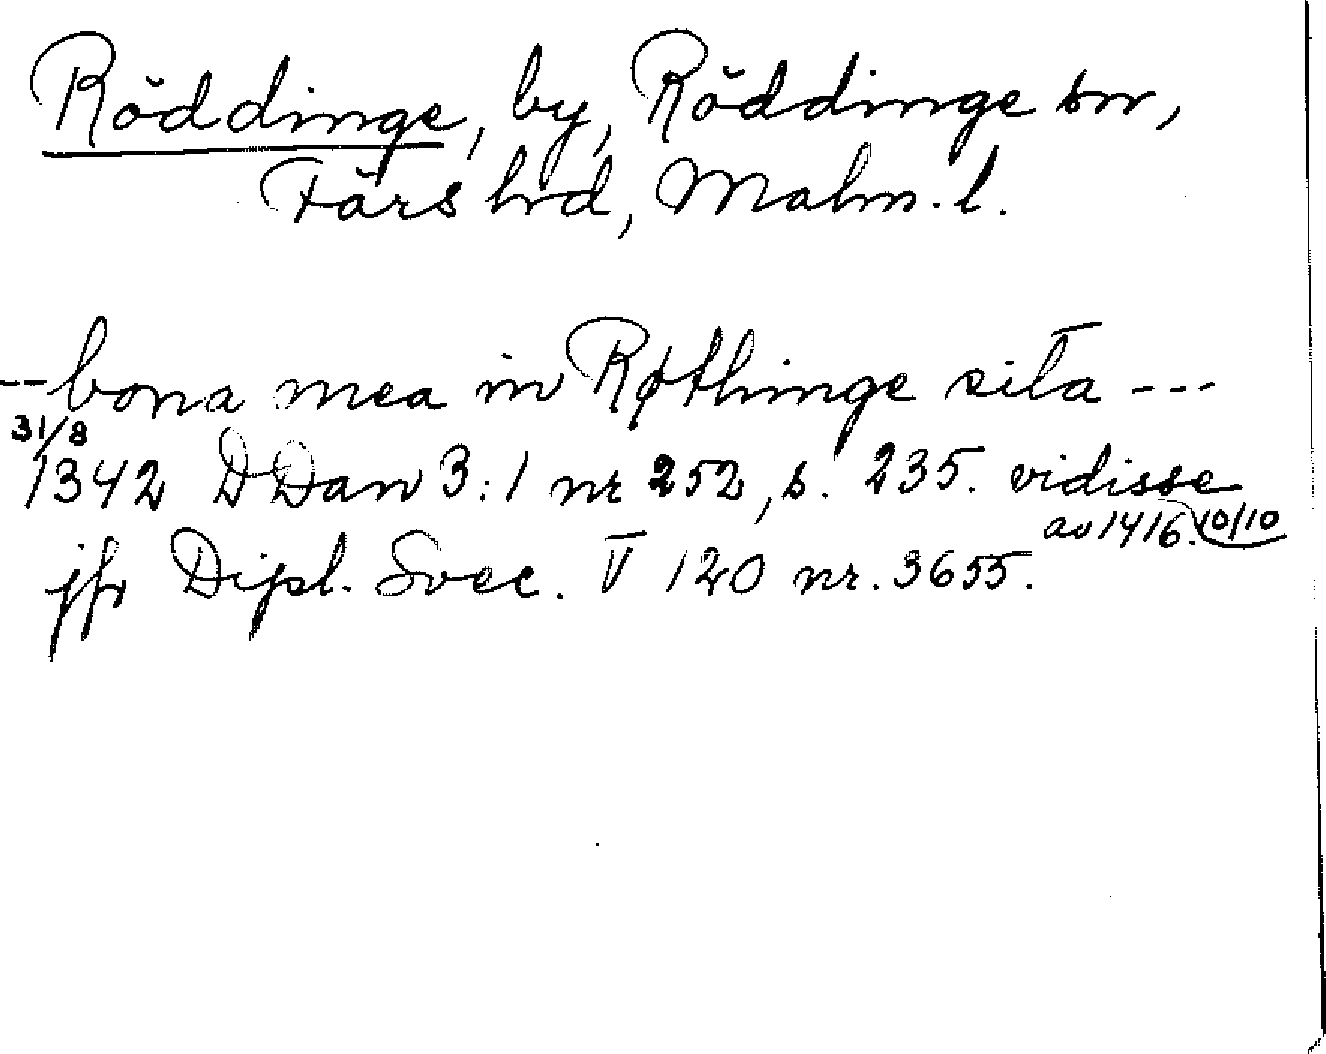 Röddinge, by, Röddinge sn,
Färs hrd, Malm. l.
-- bona mea in Røthinge sita ---
31/8
1342 DDan 3:1 nr 252, s. 235. vidisse
av 1416 10/10
jfr Dipl. Svec. V 120 nr. 3655.